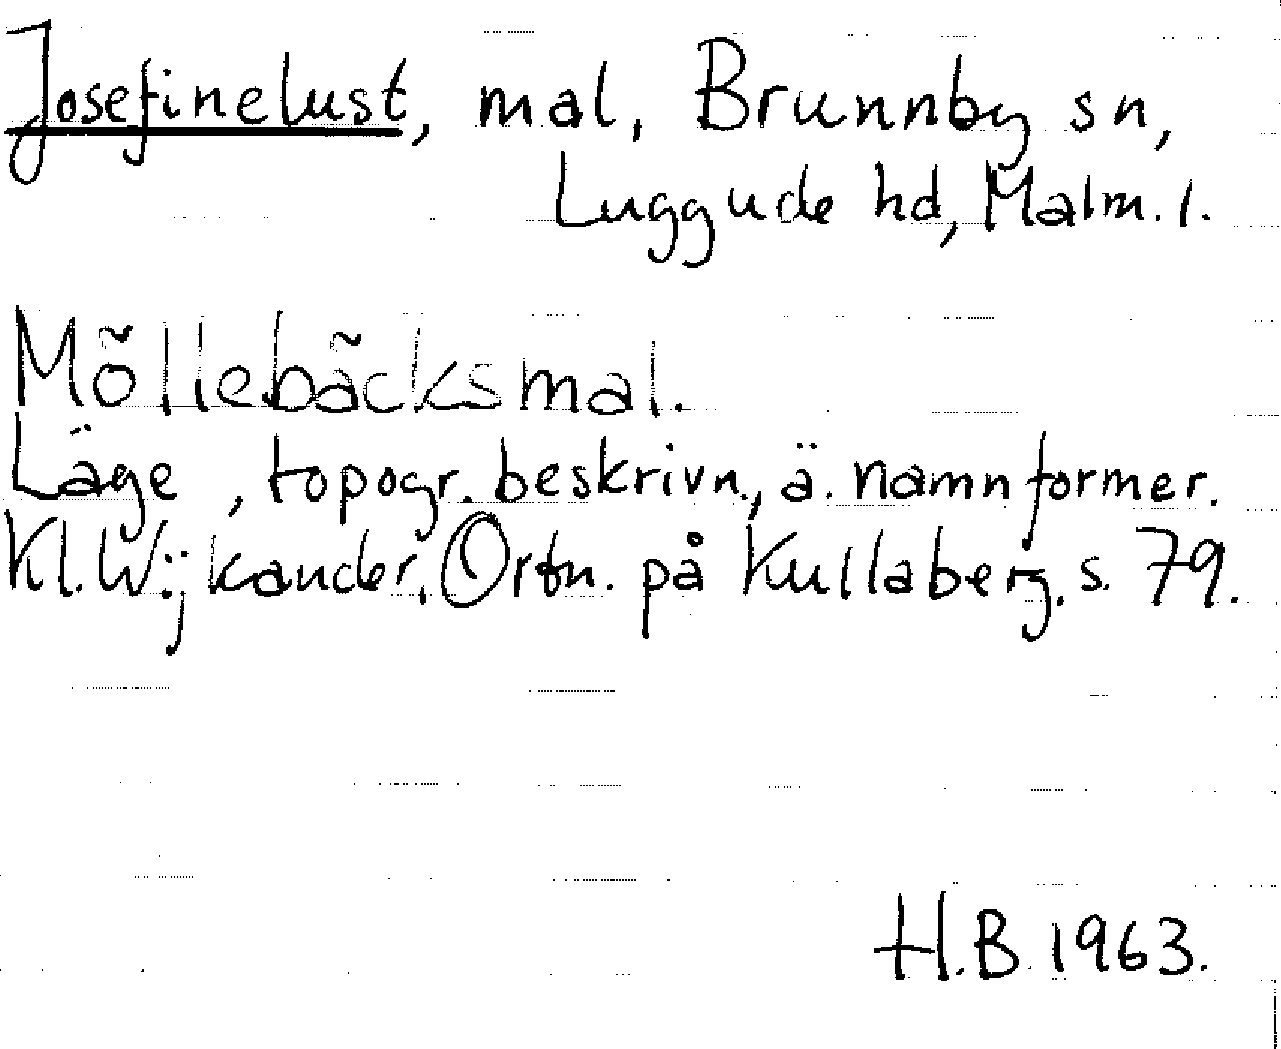 Josefinelust, mal, Brunnby sn,
Luggude hd, Malm. l.
Möllebäcksmal.
Läge, topogr. beskrivn., ä. namnformer.
Kl. Wijkander, Ortn. på Kullaberg. s. 79.
H.B. 1963.